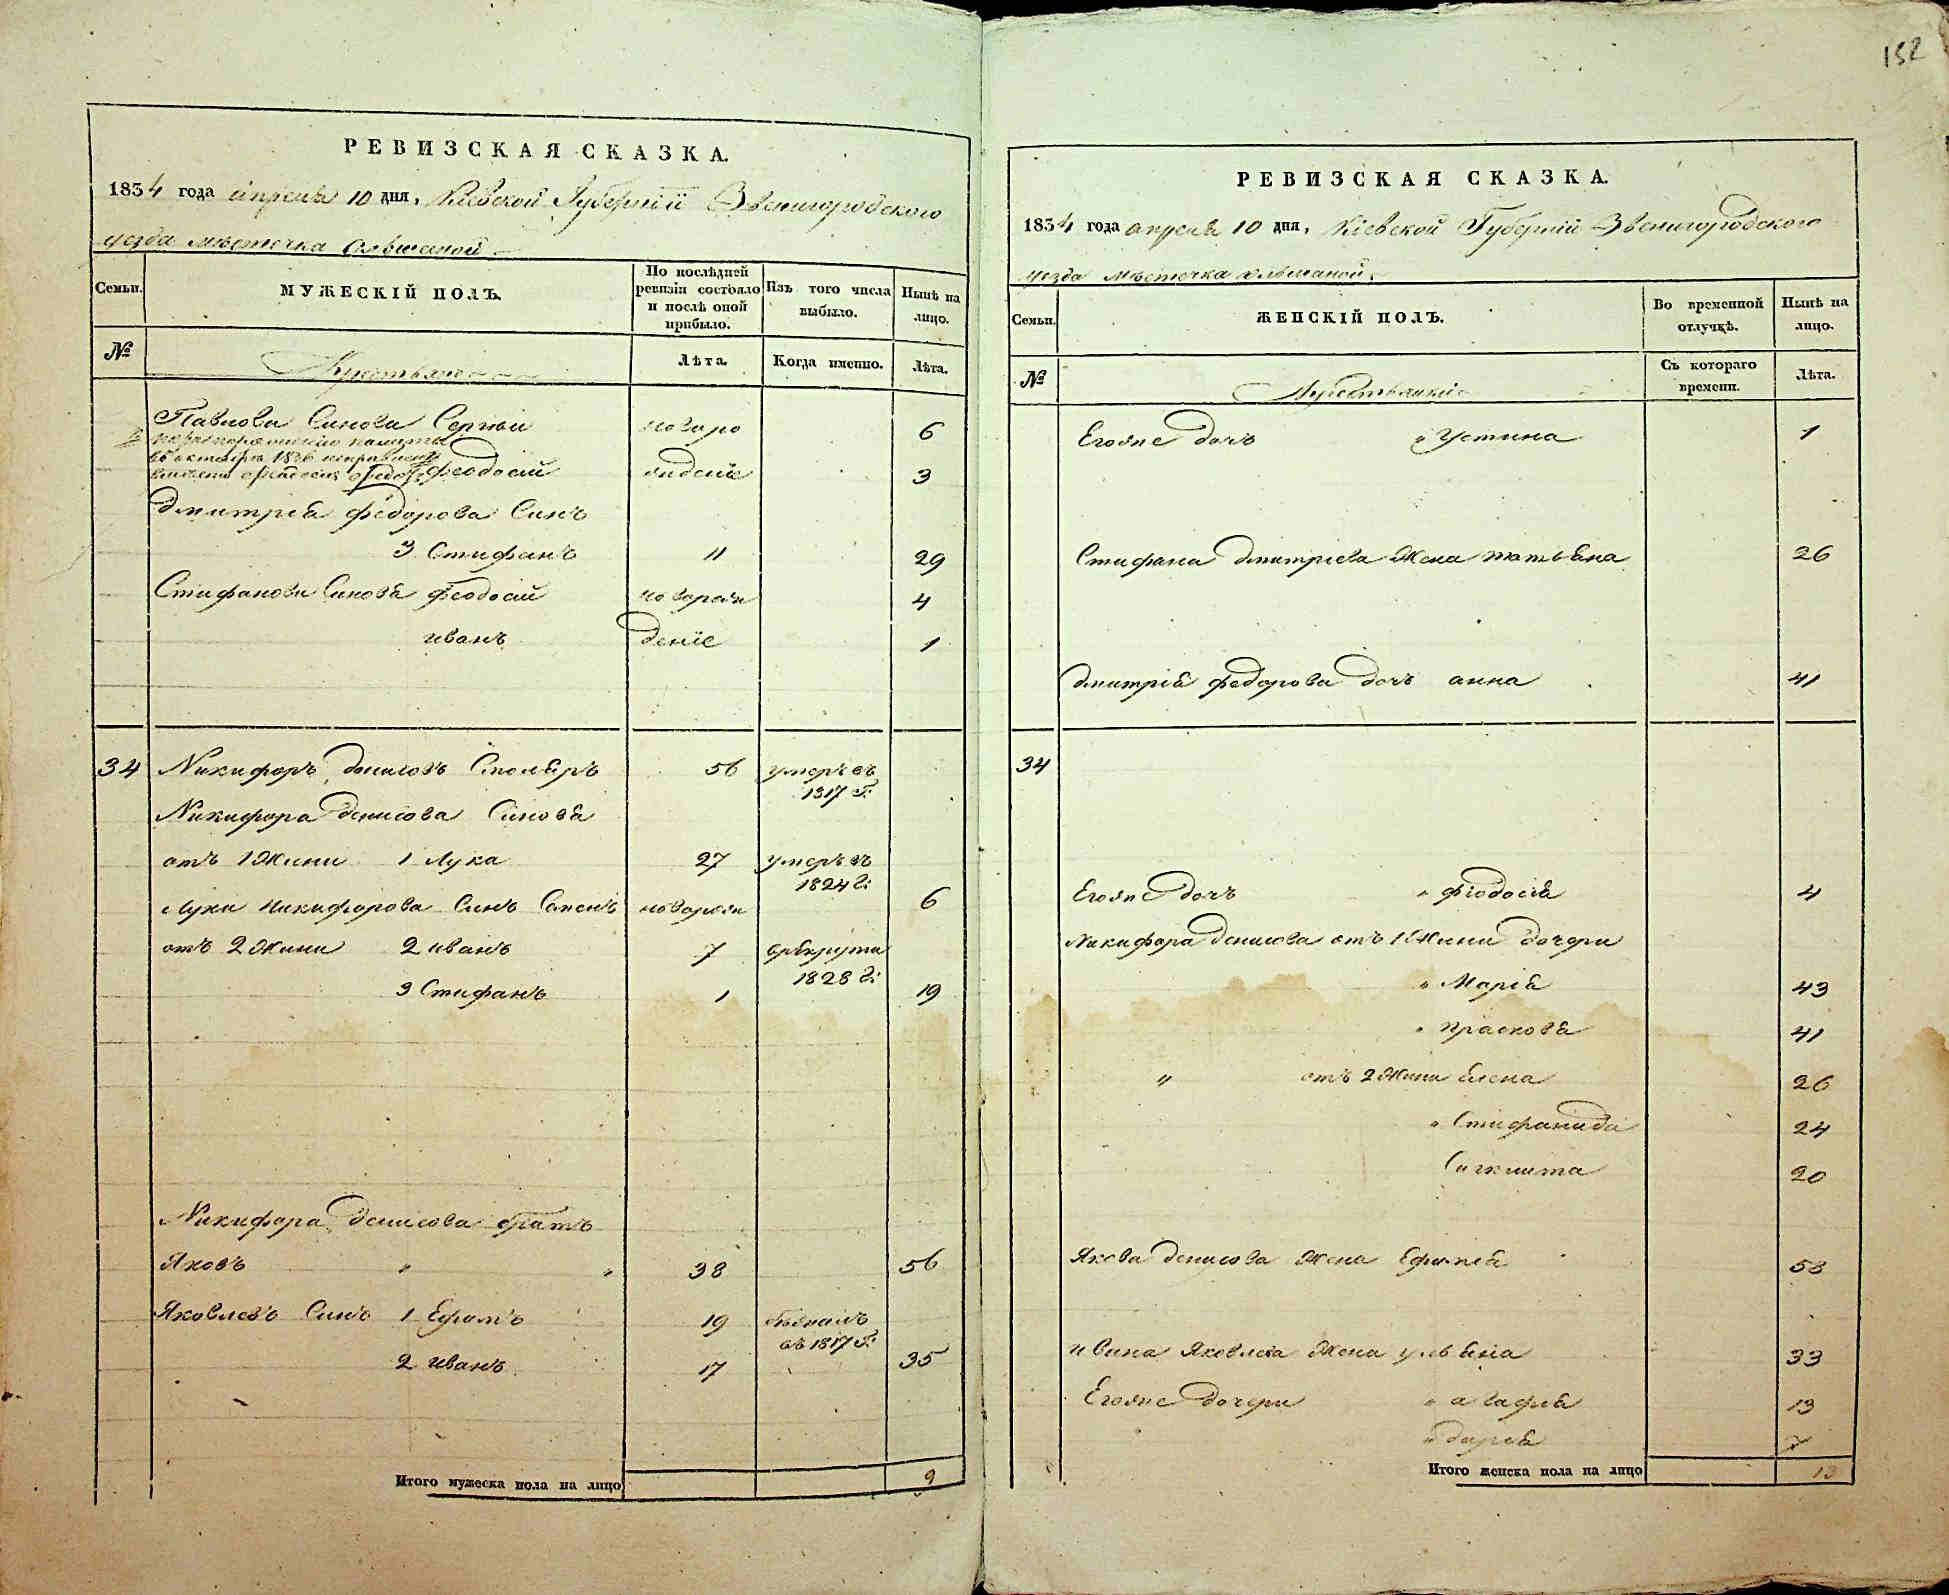 152
РЕВИЗСКАЯ СКАЗКА.
1834 года апреля 10 дня, Кіевской Губерніи Звенигородского
уезда местечка Ольшаной
Семьи.
МУЖЕСКІЙ ПОЛЪ.
По послѣдней ревизіи состояло и послѣ оной прибыло.
Изъ того числа выбыло.
Нынѣ на лицо.
№
Крестьяне
Лѣта.
Когда именно.
Лѣта.
Павлови Синови Сергѣй новоро 6
Феодосій жденіе 3
Дмитрія Федорова Синъ
3 Стифанъ 11 29
Стифанови Синовя Феодосій новорож 4
иванъ деніе 1
34 Никифоръ денисовъ Столяръ 56 умеръ въ
1817 г:
Никифора Денисова Синовя
отъ 1 Жини 1 Лука 27 умеръ въ
1824 г:
Луки Никифорова Синъ Семенъ новорож 6
отъ 2 Жини 2 иванъ 7 врекрута
1828 г:
3 Стифанъ 1 19
Никифора Денисова братъ
Яковъ " " 38 56
Яковлевъ Синъ 1 Ефимъ 19 бежалъ
въ 1817 г:
2 иванъ 17 35
Итого мужеска пола на лицо 9
РЕВИЗСКАЯ СКАЗКА.
1834 года апреля 10 дня, Кіевской Губерній Звенигородского
уезда местечка ольшаной.
Семьи.
ЖЕНСКІЙ ПОЛЪ.
Во временной отлучкѣ.
Нынѣ на лицо.
№
Крестьянкі
Съ котораго времени.
Лѣта.
Егожъ дочъ " Устина 1
Стифана Дмитріева Жена татьяна 26
Дмитрія Федорова дочъ анна 41
34
Егоже дочъ " Фіодосія 4
Никифора Денисова отъ 1 Жини дочери
" Марія 43
" прасковя 41
" отъ 2 Жини Елена 26
" Стифанида 24
20
Якова Денисова Жена Ефимія 58
ивана Яковлева Жена ульяна 33
Егоже дочери " агафія 13
" дарья 7
Итого женска пола на лицо 13